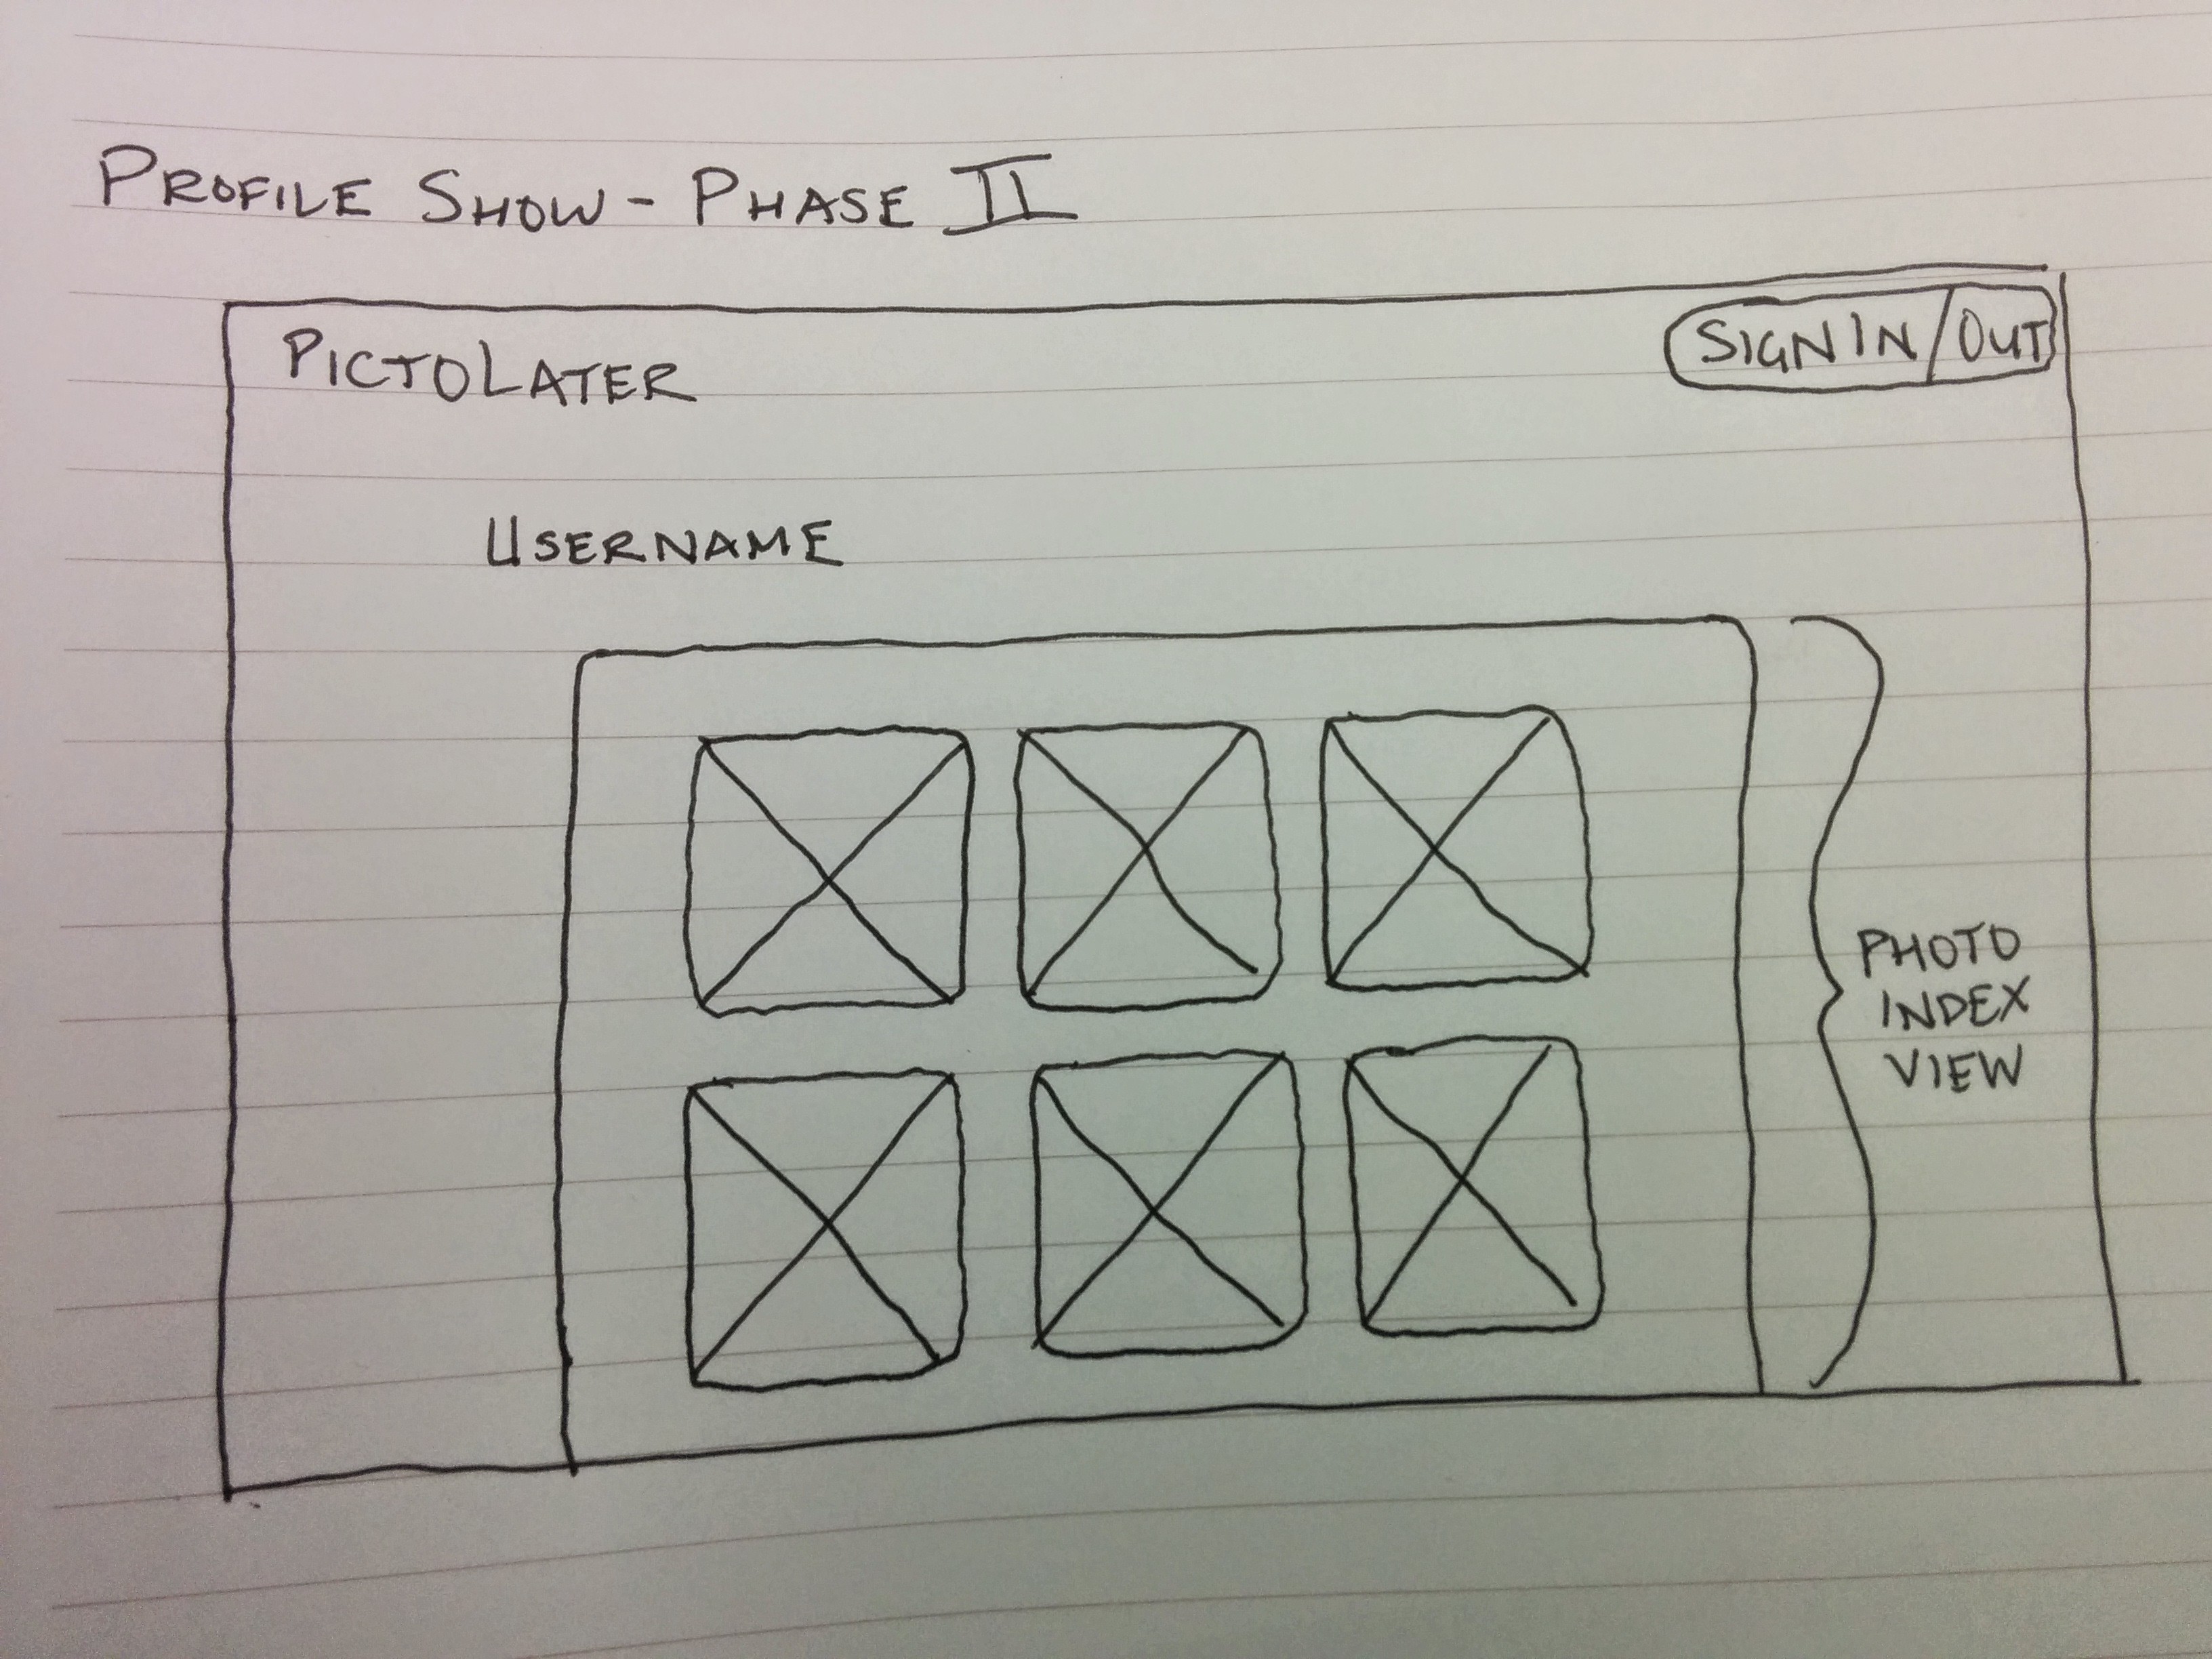 PROFILE SHOW - PHASE II
PICTOLATER
SIGN IN/OUT
USERNAME
PHOTO
INDEX
VIEW